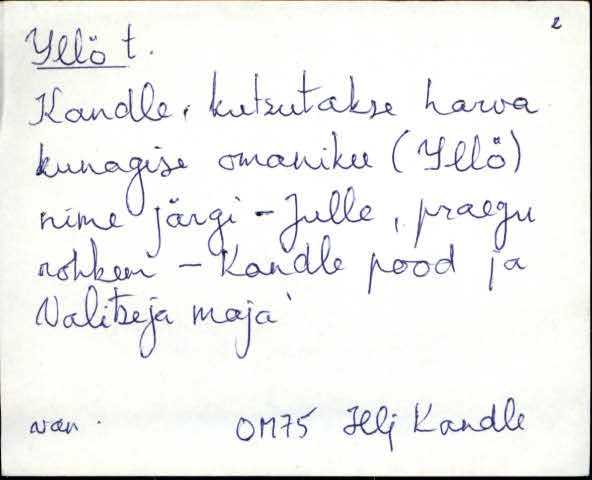 2
Yllö t.
Kandle, kutsutakse harva
kunagise omaniku (Yllö)
nime järgi - Julle, praegu
rohkem - Kandle pood ja
Valitseja maja
van. OM75 Hlj Kandle